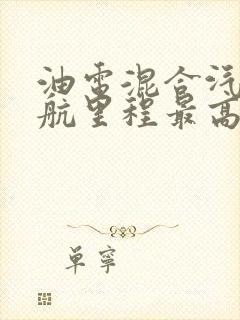 油电混合汽
航里程最高
单宁